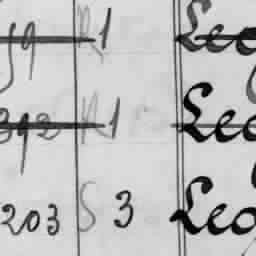 59 R 1 Leo
392 R 1 Leo
203 S 3 Leo